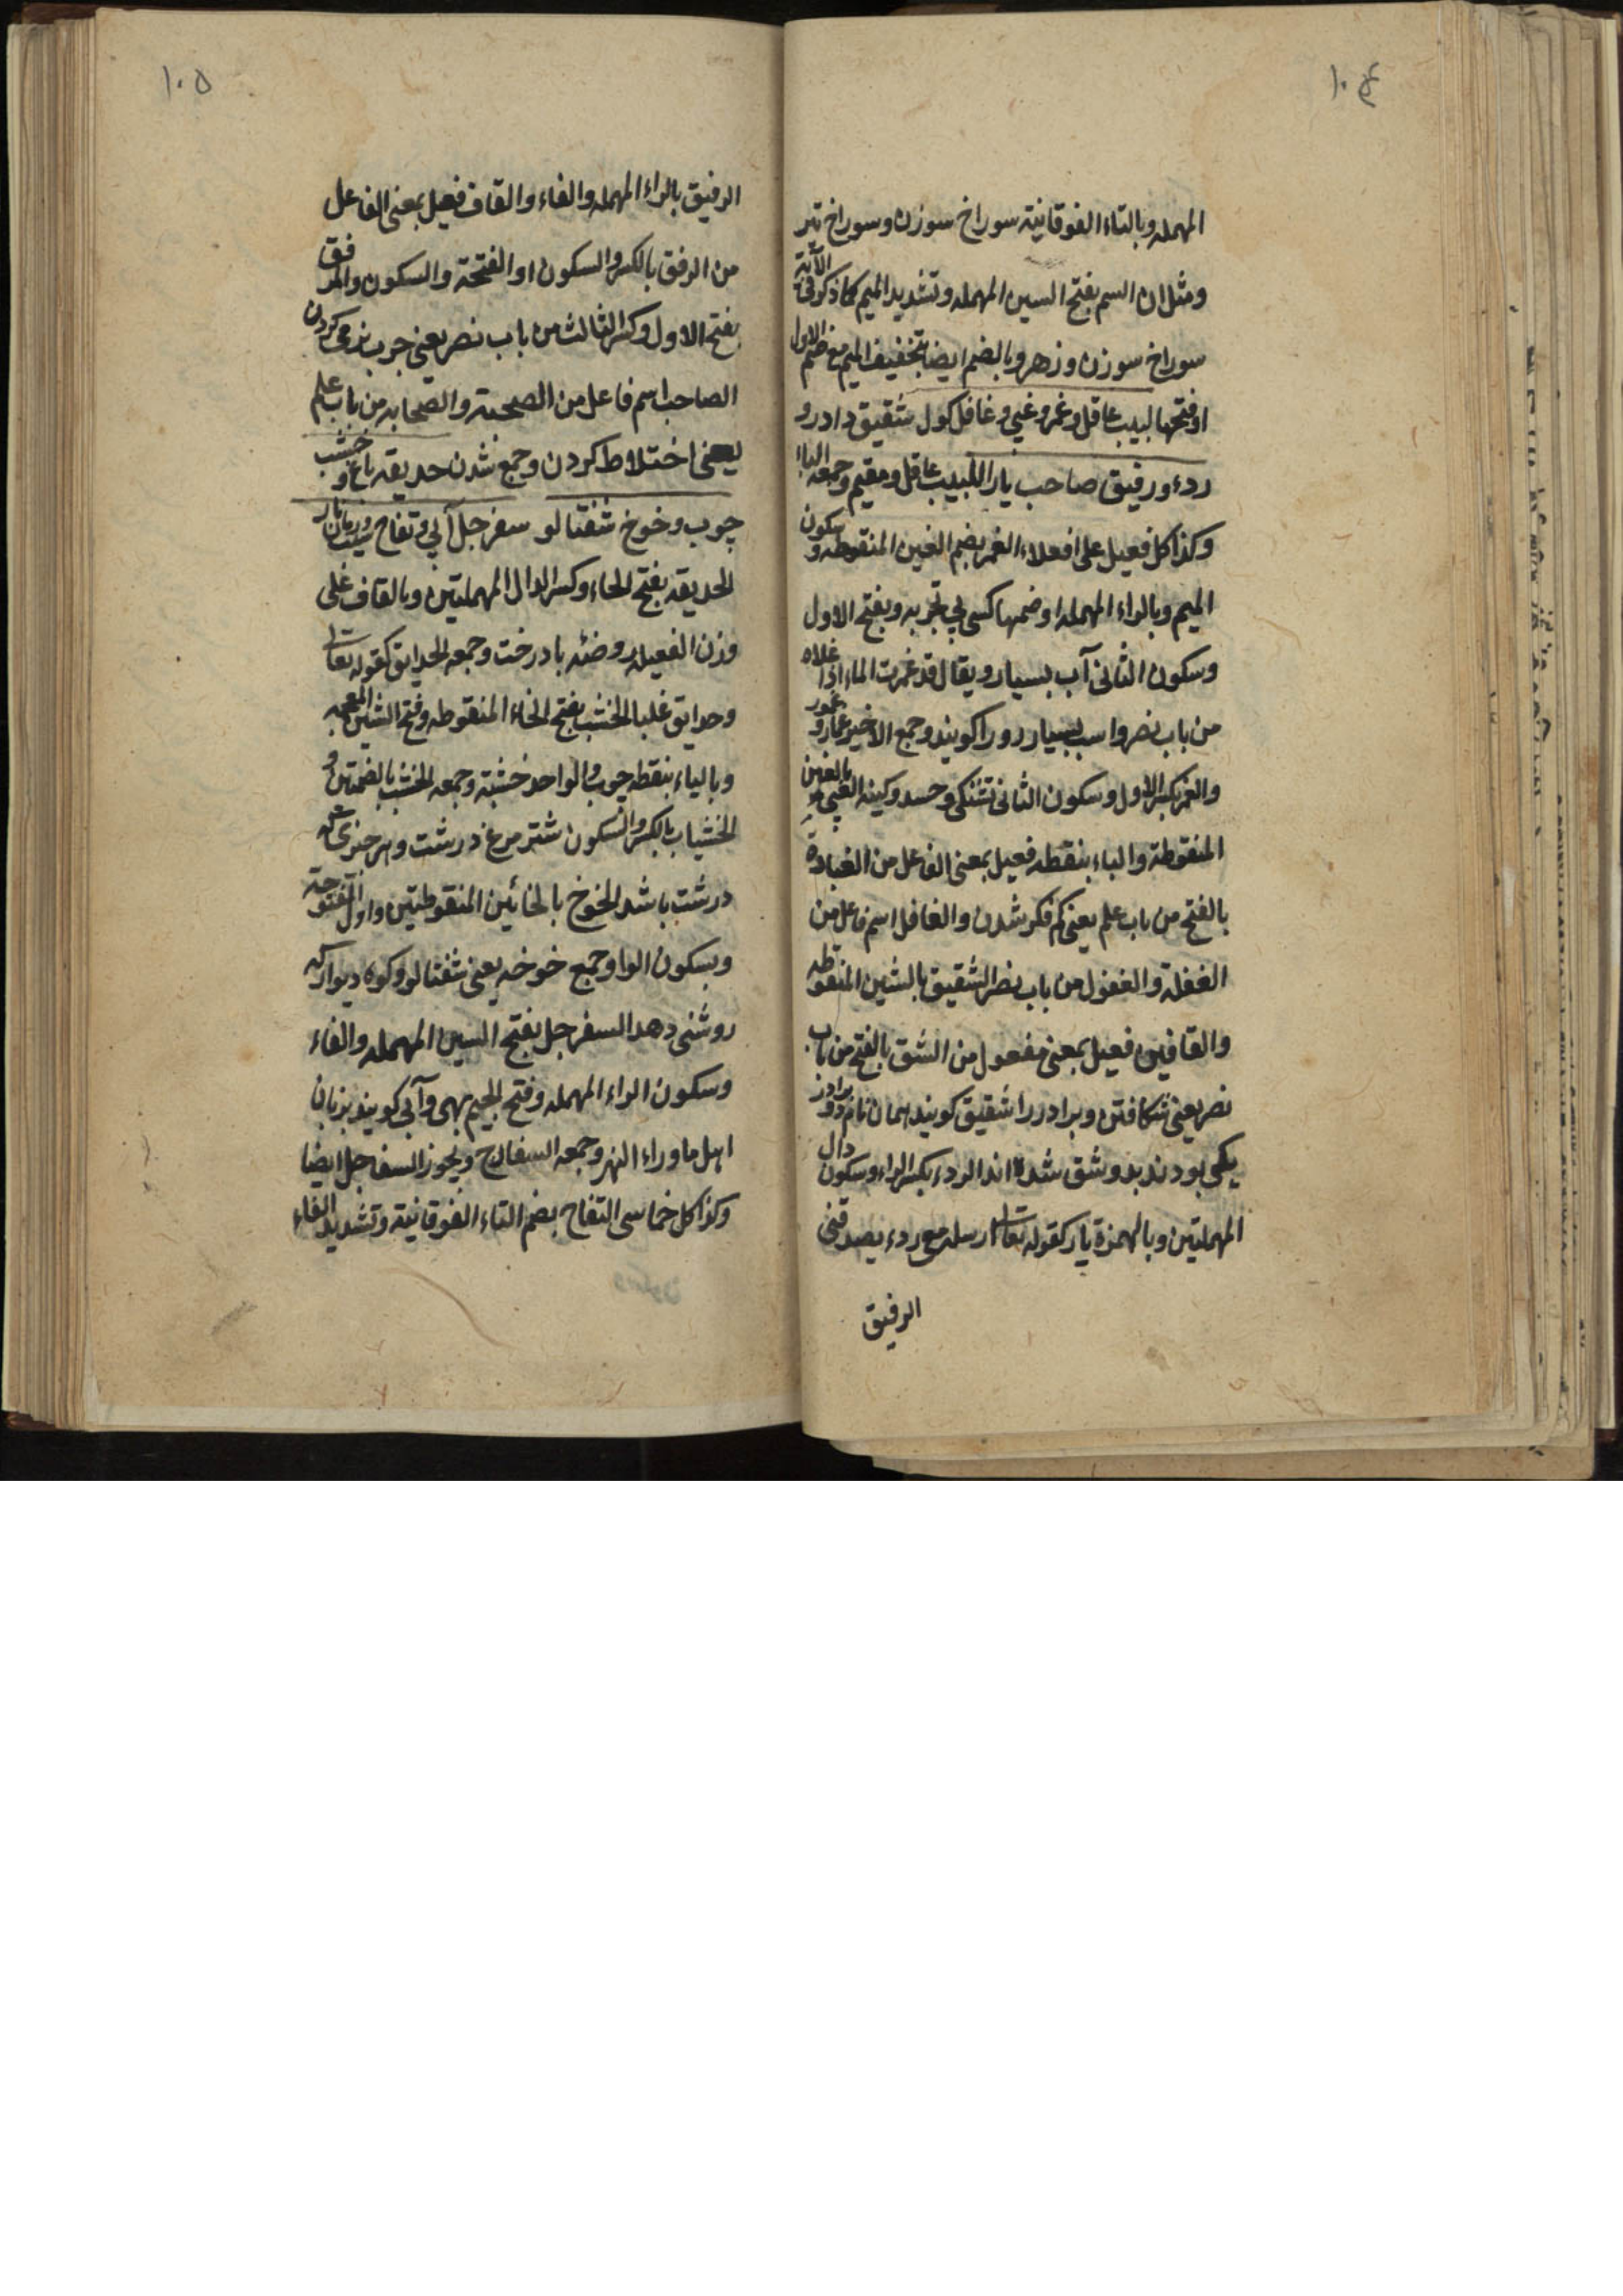 ۱۰۴
المهمله وبالتاء الفوقانیة سوراخ سوزن وسوراخ تبر
ومثل ان السم بفتح السین المهمله وتشدید المیم کما ذکر فی الآیة
سوراخ سوزن وزهر وبالضم ایضا بتخفیف المیم مع ضم الاول
او فتحها لبیب عاقل وغمر وغبی وغافل کول شقیق دادرو
ردء ورفیق صاحب یار اللبیب عاقل ومقیم وجمعه البا
وکذا کل فعیل علی افعلاء الغمر بضم الغین المنقوطه وسکون
المیم وبالراء المهمله او ضمها کسی بی تجربه وبفتح الاول
وسکون الثانی آب بسیار ویقال قد غمرت الماء اذا علاه
من باب نصر واسب بسیار دو را کویند وجمع الاخیر غمار وغمور
والغمر بکسر الاول وسکون الثانی تشنکی وحسد وکینه الغبی بالغین
المنقوطة والباء بنقطه فعیل بمعنی الفاعل من الغباوة
بالفتح من باب علم یعنی کم فکر شدن والغافل اسم فاعل من
الغفلة والغفول من باب نصر الشقیق بالشین المنقوطه
والقافین فعیل بمعنی مفعول من الشق بالفتح من باب
نصر یعنی شکافتن وبرادر را شقیق کویند همان نام دو برادر
یکی بودند بدو شق شده اند الردء بکسر الراء وسکون دال
المهملتین وبالهمزة یار کقوله تعا ارسله مع ردء یصدقنی
الرفیق
۱۰۵
الرفیق بالراء المهمله والفاء والقاف فعیل بمعنی الفاعل
من الرفق بالکسر والسکون او الفتحة والسکون والمرفق
بفتح الاول وکسر الثالث من باب نصر یعنی چرب نرمی کردن
الصاحب اسم فاعل من الصحبة والصحابه من باب علم
یعنی اختلاط کردن وجمع شدن حدیقه باغ وخشب
چوب وخوخ شفتالو سفرجل آبی وتفاح سیب ورمان نار
الحدیقه بفتح الحاء وکسر الدال المهملتین وبالقاف علی
وزن الفعیله روضئه بادرخت وجمعه الحدایق کقوله تعا
وحدایق غلبا الخشب بفتح الخاء المنقوطه وفتح الشین المعجمه
وبالیاء بنقطه چوب والواحد خشبة وجمعه الخشب بالضمتین و
الخشباب بالکسر والسکون شتر مرغ درشت وهر چیزی که
درشت باشد الخوخ بالخائین المنقوطتین واول المفتوحة
وبسکون الواو جمع خوخه یعنی شفتالو وکوه دیوار که
روشنی دهد السفرجل بفتح السین المهمله والفاء
وسکون الراء المهمله وفتح الجیم بهی وآبی کویند بزبان
اهل ماوراء النهر وجمعه السفارج ویجوز السفاجل ایضا
وکذا کل خماسی التفاح بضم التاء الفوقانیة وتشدید الفاء